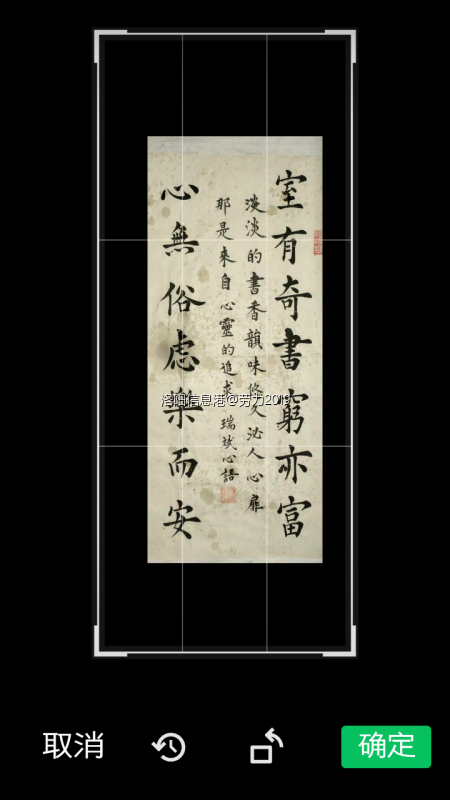 室有奇書窮亦富
淡淡的書香韻味悠久泌人心扉
那是來自心靈的追求 瑞斌心語
心無俗慮樂而安
洛阳信息港@劳力2019
取消
确定